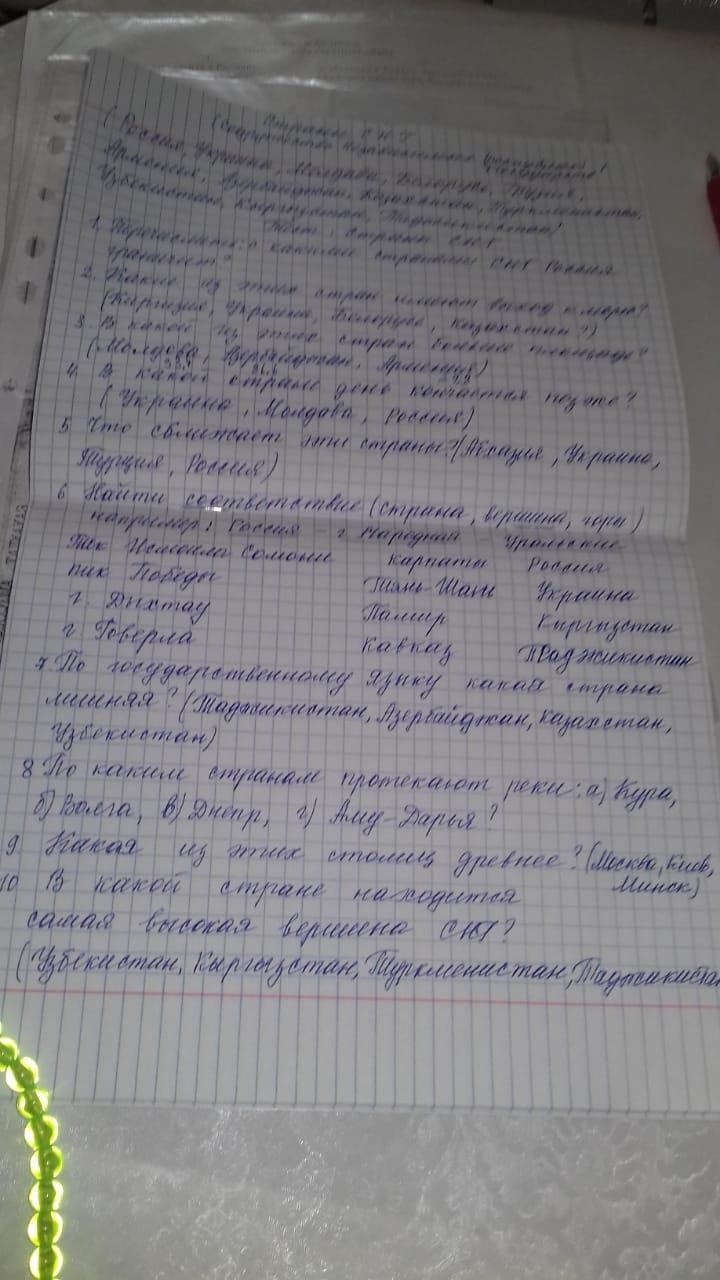 Страны СНГ
(Содружество Независимых Государств)
(Россия, Украина, Молдава, Белорусь, Грузия,
Армения, Азербайджан, Казахстан, Туркменистан,
Узбекистан, Кыргызстан, Таджикистан)
Тест: Страны СНГ
1. Перечислить: с какими странами СНГ Россия
граничет?
2. Какие из этих стран имеют выход к морю?
(Киргизия, Украина, Белорусь, Казахстан?)
3. В какой из этих стран больше площадь?
(Молдова, Азербайджан, Армения)
4. В какой стране день кончается позже?
(Украина, Молдава, Россия)
5 Что сближает эти страны? (Абхазия, Украина,
Турция, Россия)
6 Найти соответствие (страна, вершина, горы)
например: Россия - г Народная - Уральские
Пик Исмоила Сомони Карпаты Россия
пик Победы Тянь-Шань Украина
г. Дыхтау Памир Кыргызстан
г Говерла Кавказ Таджикистан
7 По государственному языку какая страна
лишняя? (Таджикистан, Азербайджан, Казахстан,
Узбекистан)
8 По каким странам протекают реки: а) Кура,
б) Волга, в) Днепр, г) Аму-Дарья?
9 Какая из этих столиц древнее? (Москва, Киев,
Минск)
10 В какой стране находится
самая высокая вершена СНГ?
(Узбекистан, Кыргызстан, Туркменистан, Таджикистан